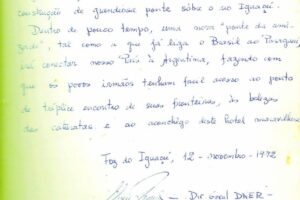 construção de grandiosa ponte sôbre o rio Iguaçú.
Dentro de pouco tempo, uma nova "ponte da ami-
zade", tal como a que já liga o Brasil ao Paraguai,
irá conectar nosso País à Argentina, fazendo com
que os povos irmãos tenham facil acesso ao ponto
de tríplice encontro de suas fronteiras, às belezas
das cataratas e ao aconchego deste hotel maravilhoso
Foz do Iguaçú, 12 - novembro - 1972
— Dir. Geral DNER -